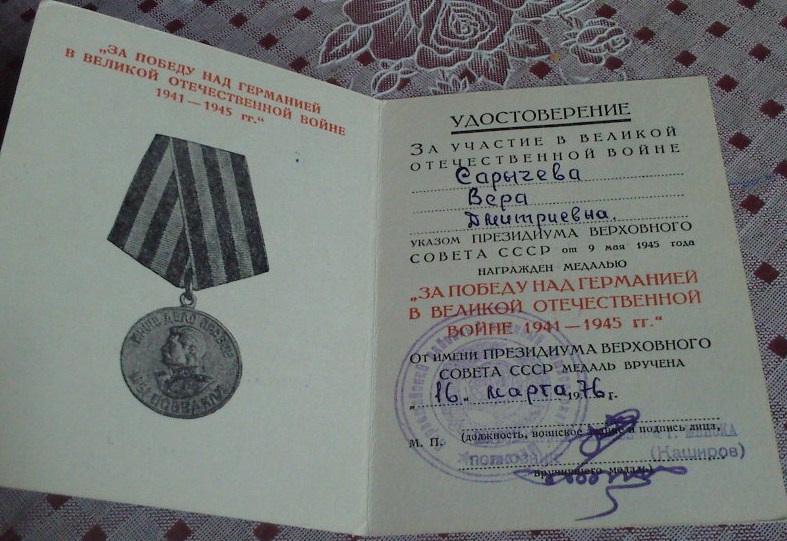 „ЗА ПОБЕДУ НАД ГЕРМАНИЕЙ
В ВЕЛИКОЙ ОТЕЧЕСТВЕННОЙ ВОЙНЕ
1941—1945 гг.“
НАШЕ ДЕЛО ПРАВОЕ
МЫ ПОБЕДИЛИ
УДОСТОВЕРЕНИЕ
ЗА УЧАСТИЕ В ВЕЛИКОЙ
ОТЕЧЕСТВЕННОЙ ВОЙНЕ
Сарычева
Вера
Дмитриевна.
УКАЗОМ ПРЕЗИДИУМА ВЕРХОВНОГО
СОВЕТА СССР от 9 мая 1945 года
НАГРАЖДЕН МЕДАЛЬЮ
„ЗА ПОБЕДУ НАД ГЕРМАНИЕЙ
В ВЕЛИКОЙ ОТЕЧЕСТВЕННОЙ
ВОЙНЕ 1941—1945 гг.“
От имени ПРЕЗИДИУМА ВЕРХОВНОГО
СОВЕТА СССР МЕДАЛЬ ВРУЧЕНА
„16„ марта 1976 г.
М. П.
(должность, воинское звание и подпись лица,
ПОЛКОВНИК (Каширов)
вручившего медаль)